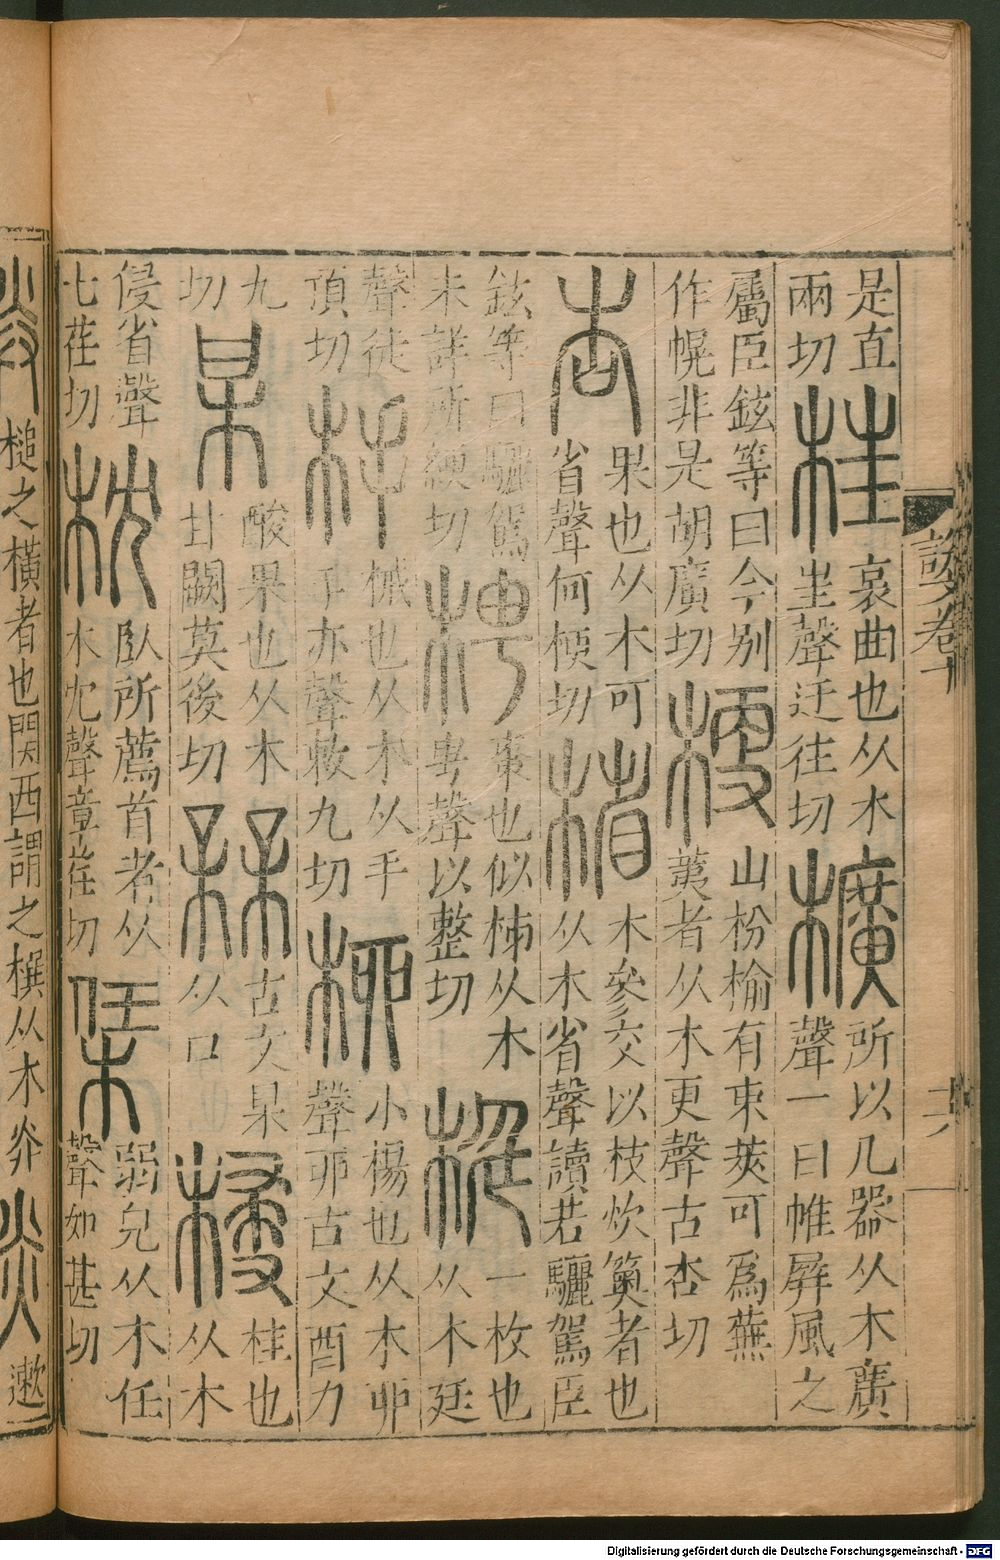 說文卷十
十六
是直
兩切
枉
衺曲也从木
㞷聲迂往切
櫎
所以几器从木廣
聲一曰帷屏風之
屬臣鉉等曰今别
作幌非是胡廣切
梗
山枌榆有朿莢可爲蕪
荑者从木更聲古杏切
杏
果也从木可
省聲何梗切
㮐
木參交以枝炊䉛者也
从木省聲讀若驪駕臣
鉉等曰驪駕
未詳所綆切
梬
棗也似柹从木
甹聲以整切
梃
一枚也
从木廷
聲徒
頂切
杽
械也从木从手
手亦聲敕九切
柳
小楊也从木丣
聲丣古文酉力
九
切
某
酸果也从木
甘闕莫後切
槑
古文杲
从口
梫
桂也
从木
侵省聲
七荏切
枕
臥所薦首者从
木冘聲章荏切
栠
弱皃从木任
聲如甚切
槌之橫者也関西謂之㯢从木灷
漱
Digitalisierung gefördert durch die Deutsche Forschungsgemeinschaft - DFG